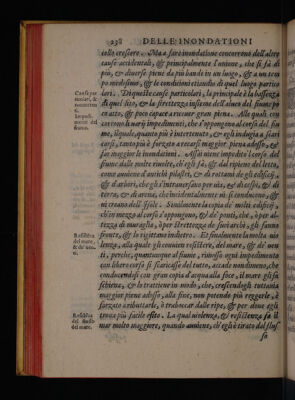 238 DELLE INONDATIONI
tollo crescere. Ma a farsi inondatione concorrono dell'altre
cause accidentali, & principalmente l'unione, che si fà di
più, & diverse piene da più bande in un luogo, & a un tem
po medesimo, & le conditioni etiandio di quel luogo partico
lari. Di queste cause particolari, la principale è la bassezza
di quel sito, & la strettezza insieme dell'alveo del fiume po
co atto, & poco capace a trarre gran piena. Alle quali con
corrono le
me, il quale, quanto più è intertenuto, & egli indugia a scari
carsi, tanto più è forzato a recarsi maggior piena adosso, &
far maggiori le inondationi.
fiume dalle molte rivolte, ch'egli fà, & dal ripieno del letto,
come aviene d'antichi pilastri, & di rottami de gli edificij,
& d'arbori, che
terre, & di arena, che incidentalmente vi si conducono, &
vi creano dell'Isole. Similmente la copia de' molti edificij,
ch'in mezzo al corso s'oppongono, & de' ponti, che, ò per al-
tezza di muraglia, ò per strettezza de
fronte, & lo rigettano indietro. Et finalmente la molta vio
lenza, alla quale gli conviene resistere, del mare, & de' ven
ti, perche, quantunque al fiume, rimosso ogni impedimento
con libero corso si scaricasse del tutto, accade nondimeno, che
conducendosi con gran copia d'acqua alla foce, il mare gli fà
schiena, & lo trattiene in modo, che, crescendogli tuttavia
maggior piena adosso, alla fine, non potendo più reggerle, è
forzato a ributtarle, & traboccar dalle ripe, & per dove egli
trova più facile esito. La qual violenza, & resistenza fà il
mar molto maggiore, quando aviene, ch'egli è tirato dal flus-
so
Cause par
ticolari, &
concorren
ti.
Impedi-
menti del
fiume.
Resistẽza
del mare,
& de' ven-
ti.
Resistẽza
del flusso
del mare.